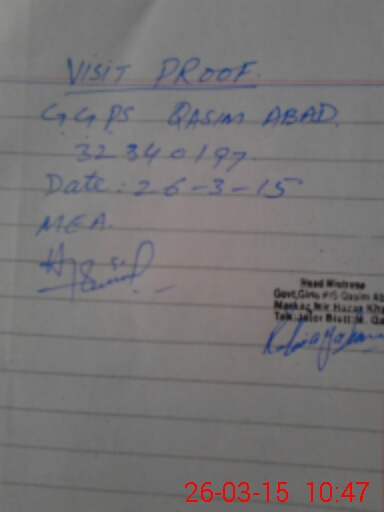 VISIT PROOF.
GGPS QASIM ABAD.
32340197
Date: 26-3-15
MEA.
Head Mistress
Govt.Girls P/S Qasim Ab
Markaz Mir Hazar Kha
Teh: Jatoi Distt: M. Ga
26-03-15 10:47